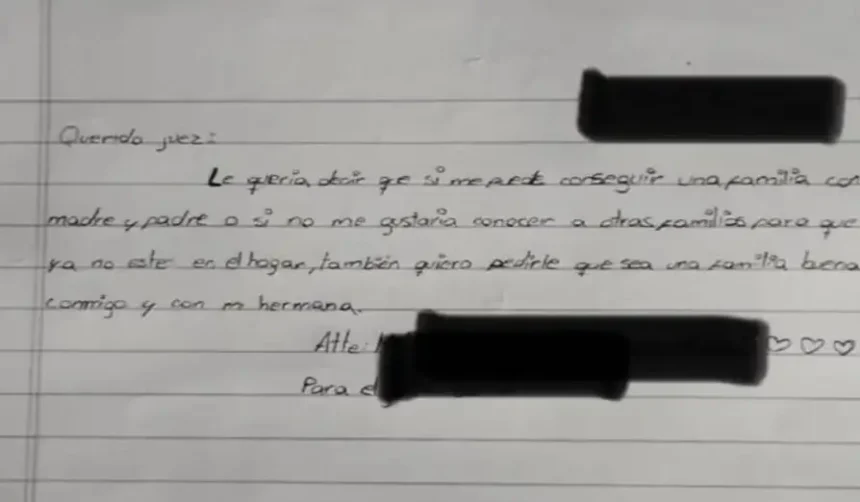 Querido juez:
Le quería decir qe si me pede conseguir una familia con
madre y padre o si no me gustaría conocer a otras familias para que
ya no este en el hogar, también quiero pedirle que sea una familia buena
conmigo y con mi hermana.
Atte:
Para el